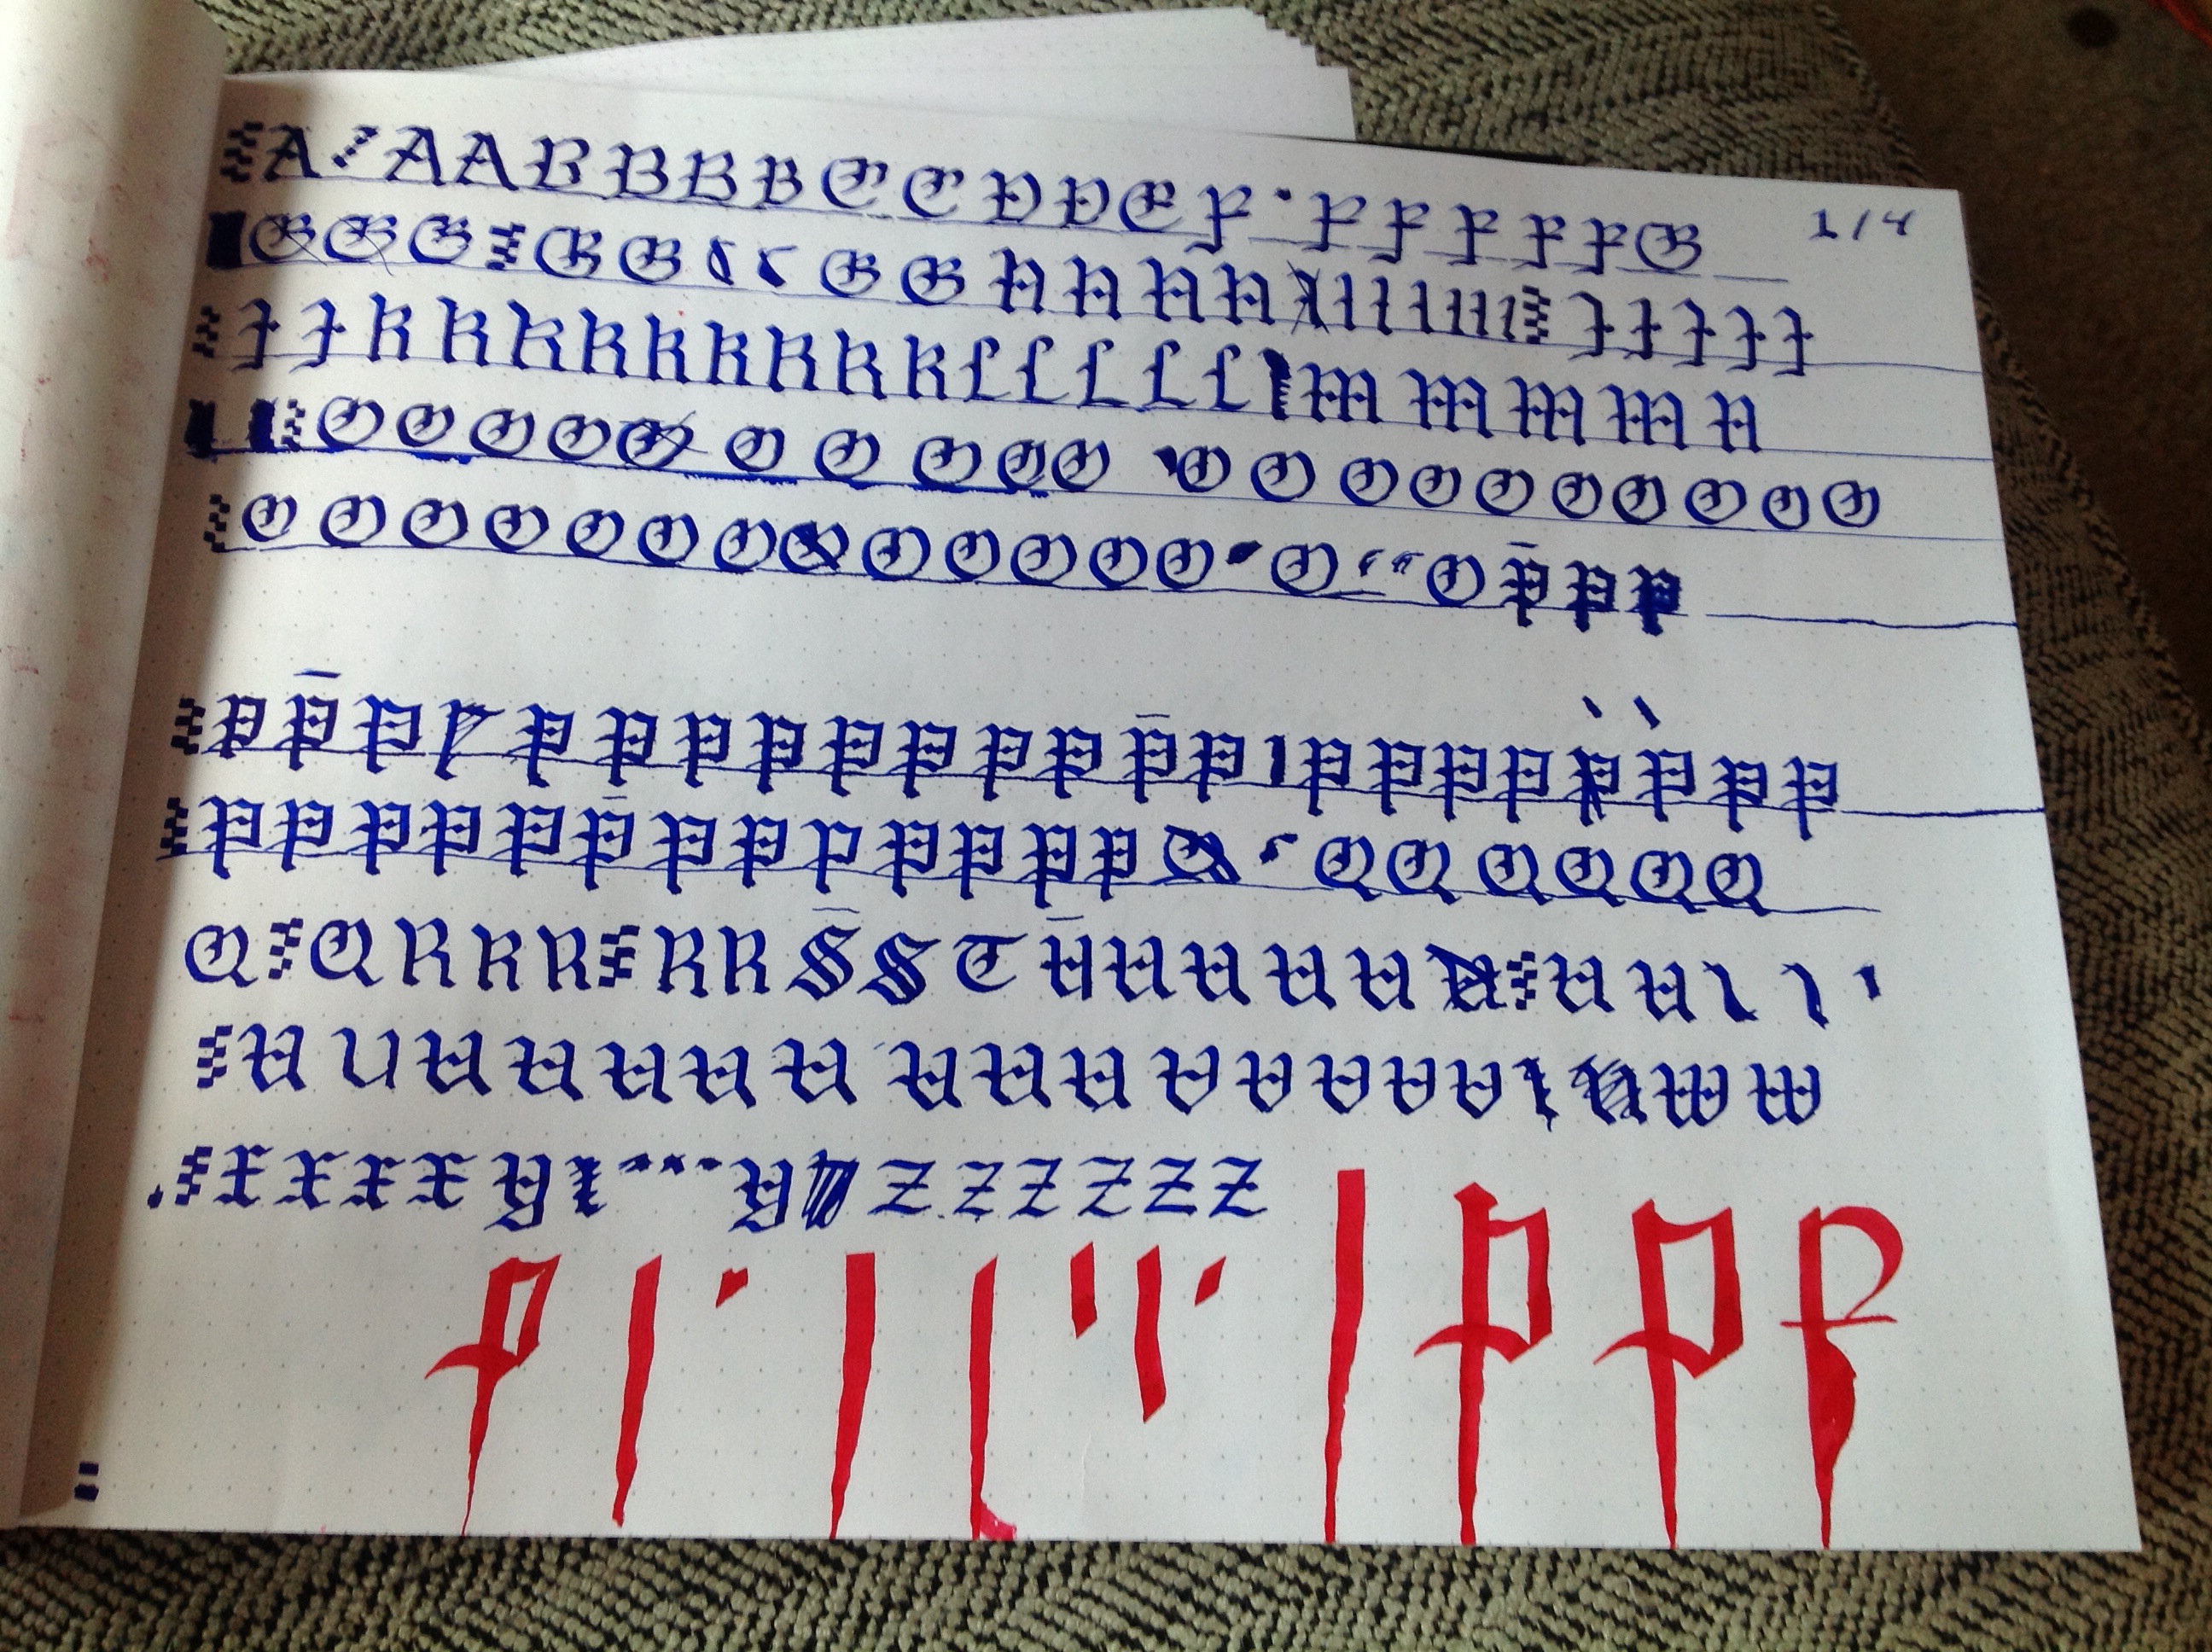 A A A B B B B C C D D E F F F F F F G
1/4
G G G G G G G H H H H I I I I I I J J J J J
J J K K K K K K K K K L L L L L M M M M N
O O O O O O O O O O O O O O O O O O O
O O O O O O O O O O O O O O O P P P
P P̄ P P P P P P P P P P̄ P P P P P P P P P
P P P P P P̄ P P P P P P P Q Q Q Q Q Q
Q Q R R R R R S̄ S T Ū U U U U U U
U U U U U U U U U U V V V V V W W
X X X X Y Y Z Z Z Z Z Z
P P P P